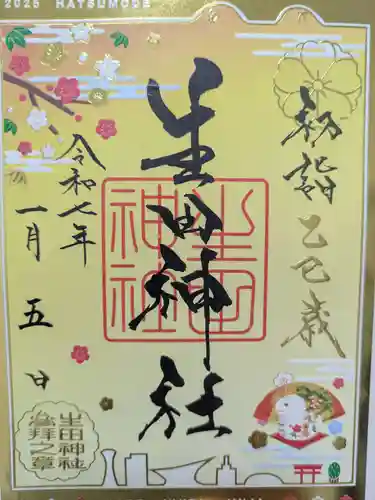 2025 HATSUMODE
初詣 乙巳歳
生田神社
生田神社
令和七年
一月五日
生田神社
参拝之章